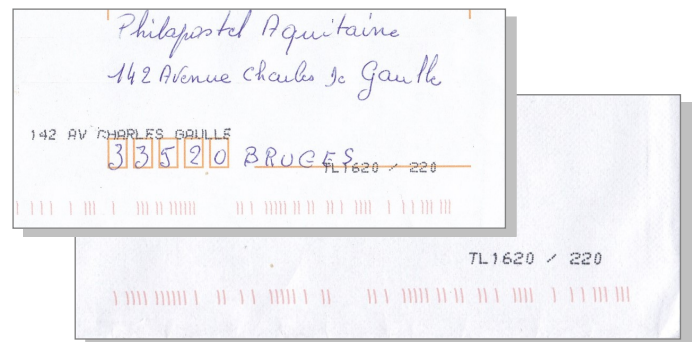 Philapostel Aquitaine
142 Avenue Charles De Gaulle
142 AV CHARLES GAULLE
33520 BRUGES
TL1620 / 220
TL1620 / 220